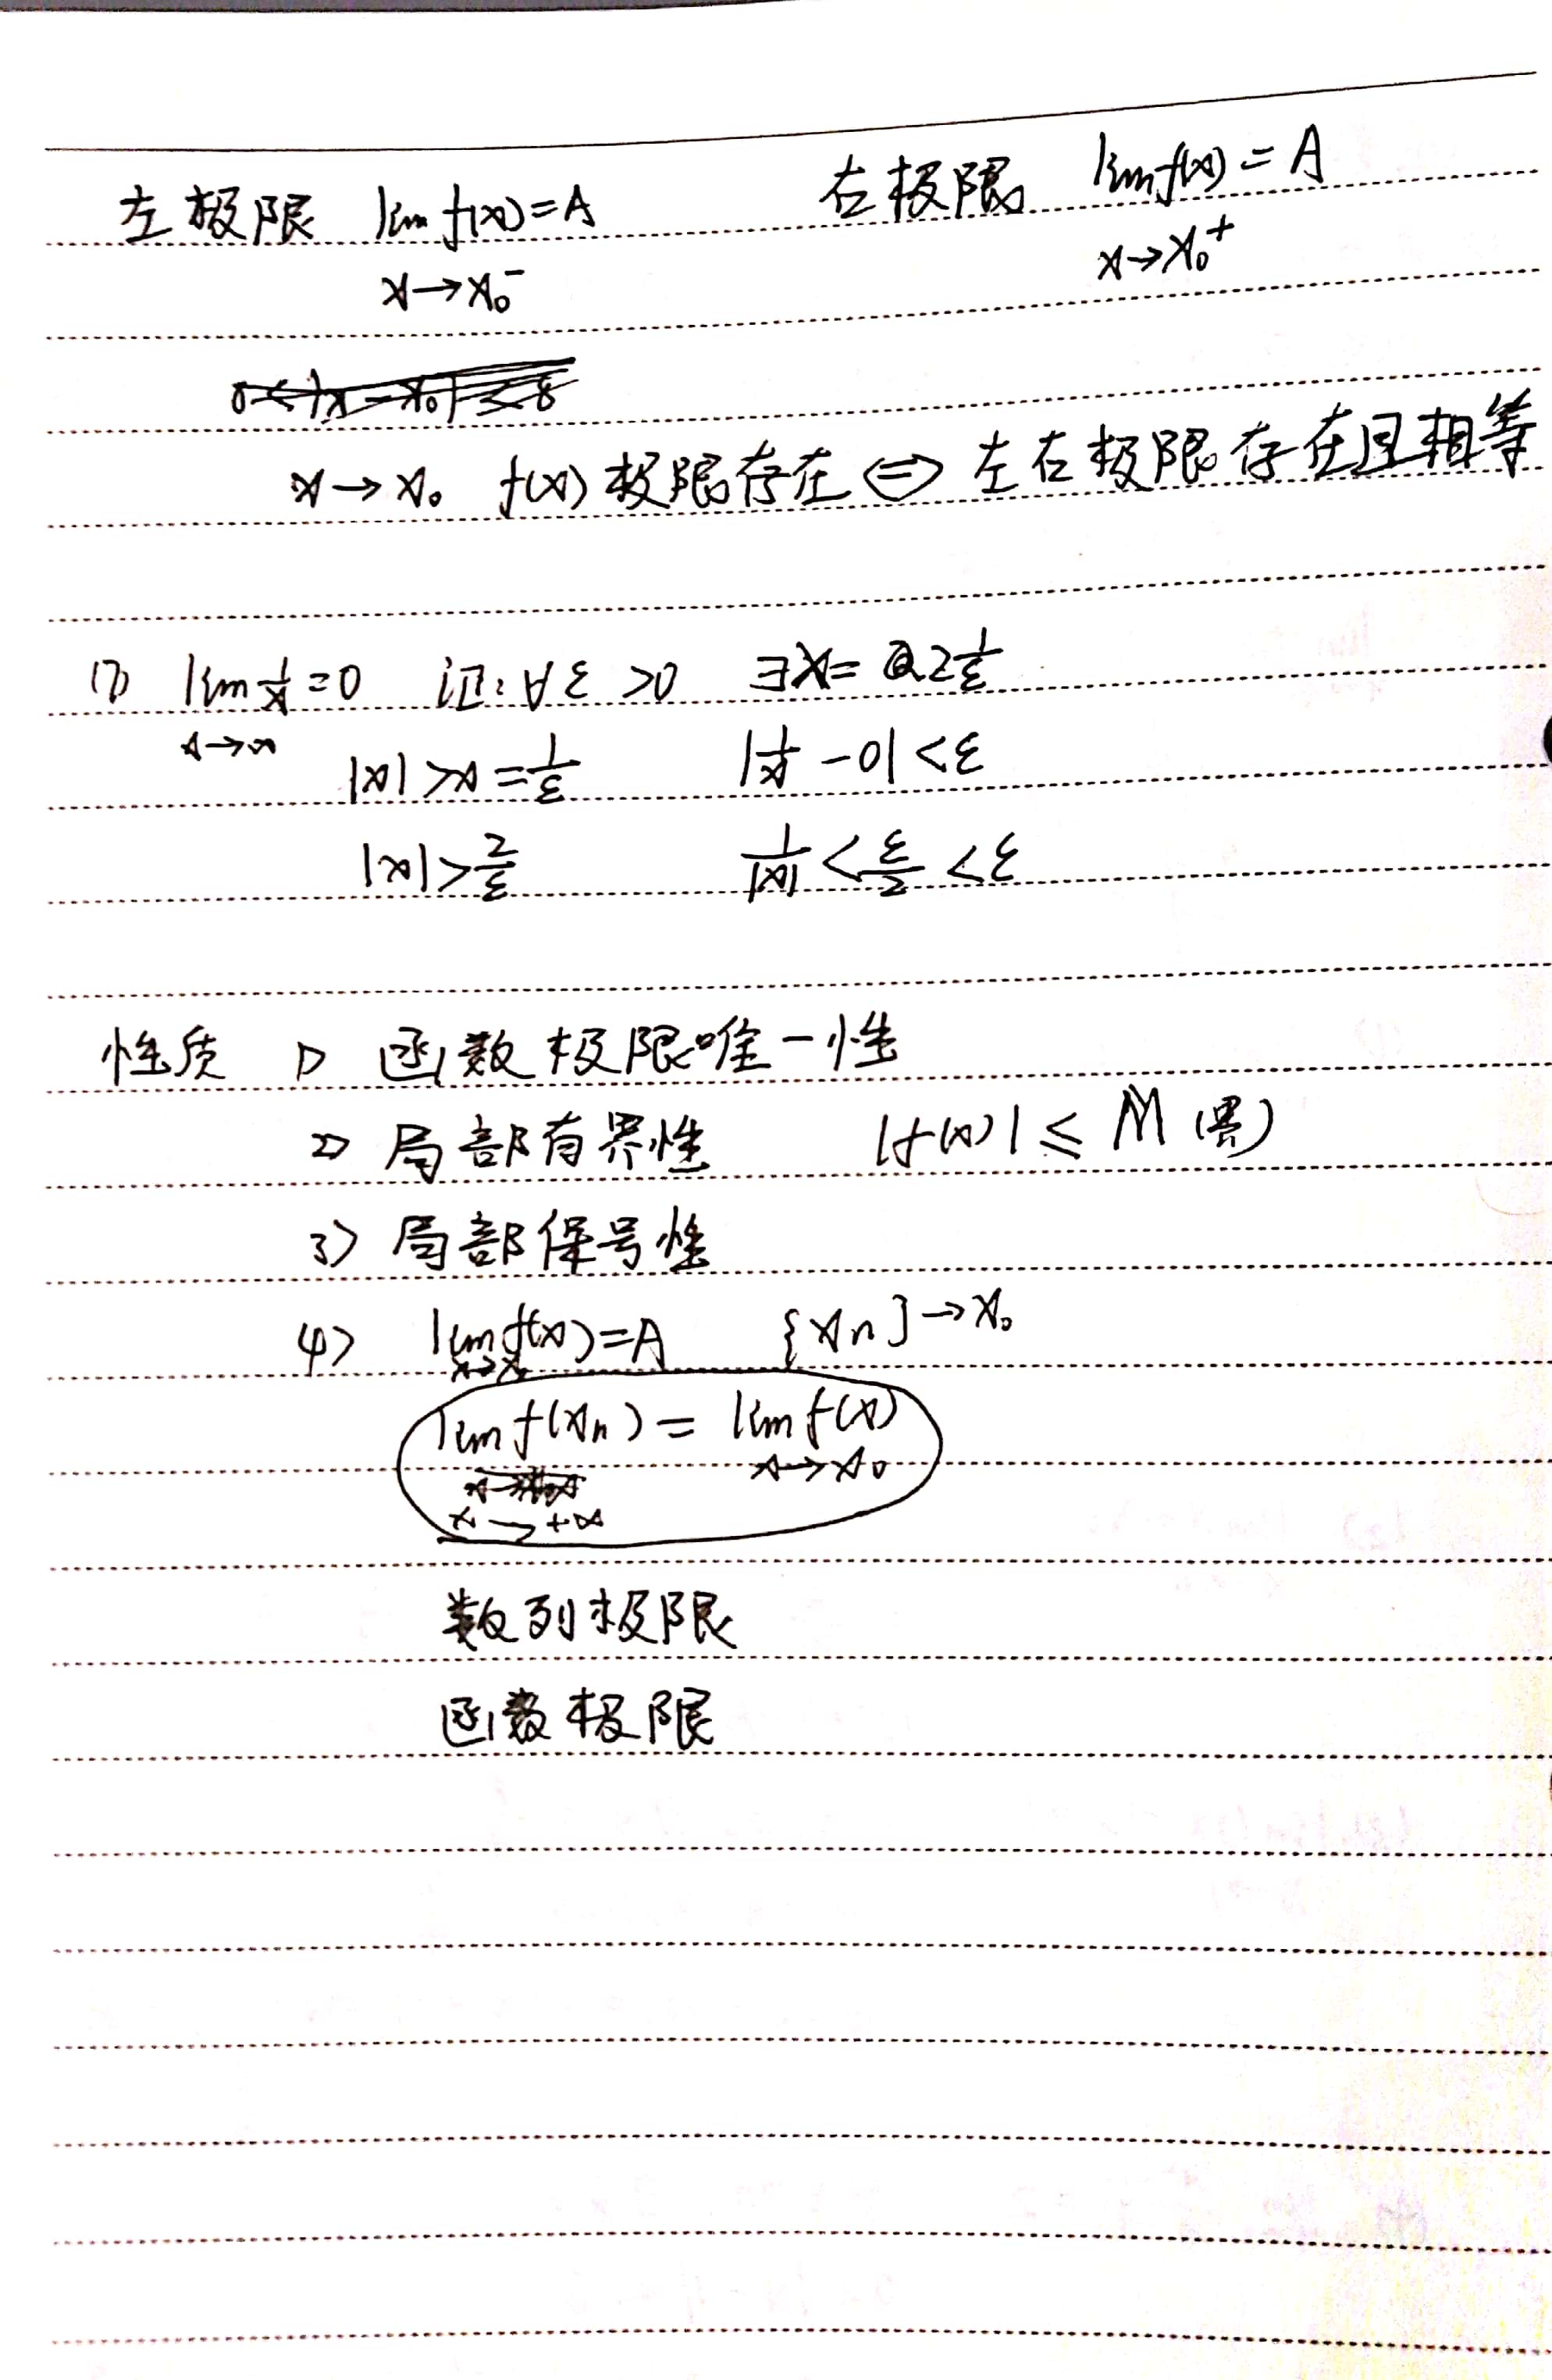 左极限 lim f(x)=A 右极限 lim f(x)=A
x→x₀⁻ x→x₀⁺
x→x₀ f(x)极限存在⇔左右极限存在且相等
(1) lim 1/x =0 证:∀ε>0 ∃X= 2 1/ε
x→∞ |x|>x=1/ε |1/x -0|<ε
|x|>2/ε 1/|x|<ε/2<ε
性质 1) 函数极限唯一性
2) 局部有界性 |f(x)|≤M (界)
3) 局部保号性
4) lim f(x)=A {xn}→x₀
x→x₀
lim f(xn) = lim f(x)
x→x₀
x→+∞
数列极限
函数极限